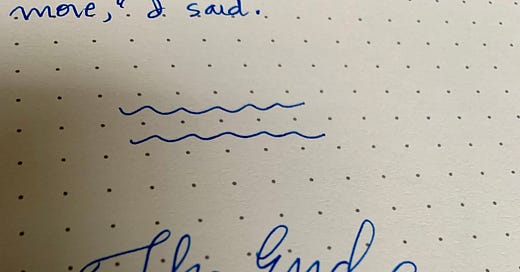 move," I said.
The End